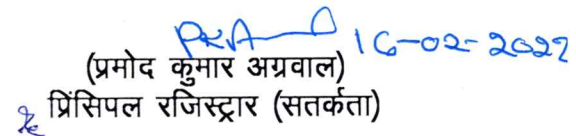 16-02-2022
(प्रमोद कुमार अग्रवाल)
प्रिंसिपल रजिस्ट्रार (सतर्कता)